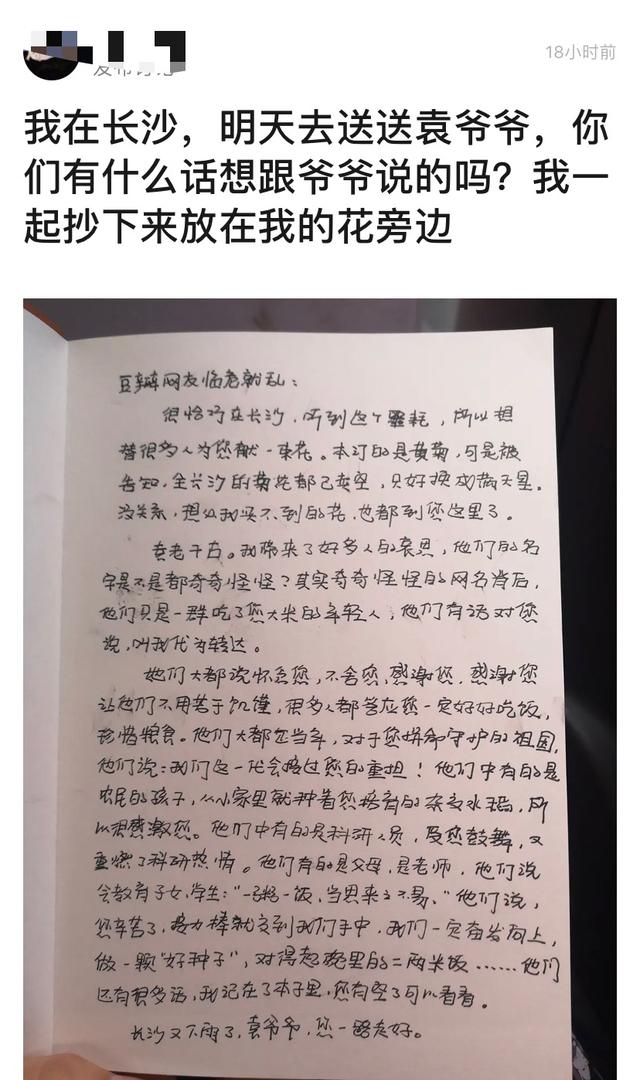 18小时前
我在长沙，明天去送送袁爷爷，你
们有什么话想跟爷爷说的吗？我一
起抄下来放在我的花旁边
豆瓣网友临老就乱：
很恰巧在长沙，听到这个噩耗，所以想
替很多人为您献一束花。本订的是黄菊，可是被
告知，全长沙的菊花都已卖空，只好换成满天星。
没关系，想必我买不到的花，也都到您这里了。
袁老千古。我带来了好多人的哀思，他们的名
字是不是都奇奇怪怪？其实奇奇怪怪的网名背后，
他们只是一群吃了您大米的年轻人，他们有话对您
说，叫我代为转达。
她们大都说怀念您，不舍您，感谢您，感谢您
让他们不用苦于饥馑，很多人都答应您一定好好吃饭，
珍惜粮食。他们大都在当年，对于您拼命守护的祖国，
他们说：我们这一代会接过您的重担！他们中有的是
农民的孩子，从小家里就种着您培育的杂交水稻，所
以很感激您。他们中有的是科研人员，受您鼓舞，又
重燃了科研热情。他们有的是父母，是老师，他们说
会教育子女、学生：“一粥一饭，当思来之不易。”他们说，
您辛苦了，接力棒就交到我们手中，我们一定奋发向上，
做一颗“好种子”，对得起碗里的二两米饭……他们
还有很多话，我记在了本子里，您有空了可以看看。
长沙又下雨了，袁爷爷，您一路走好。